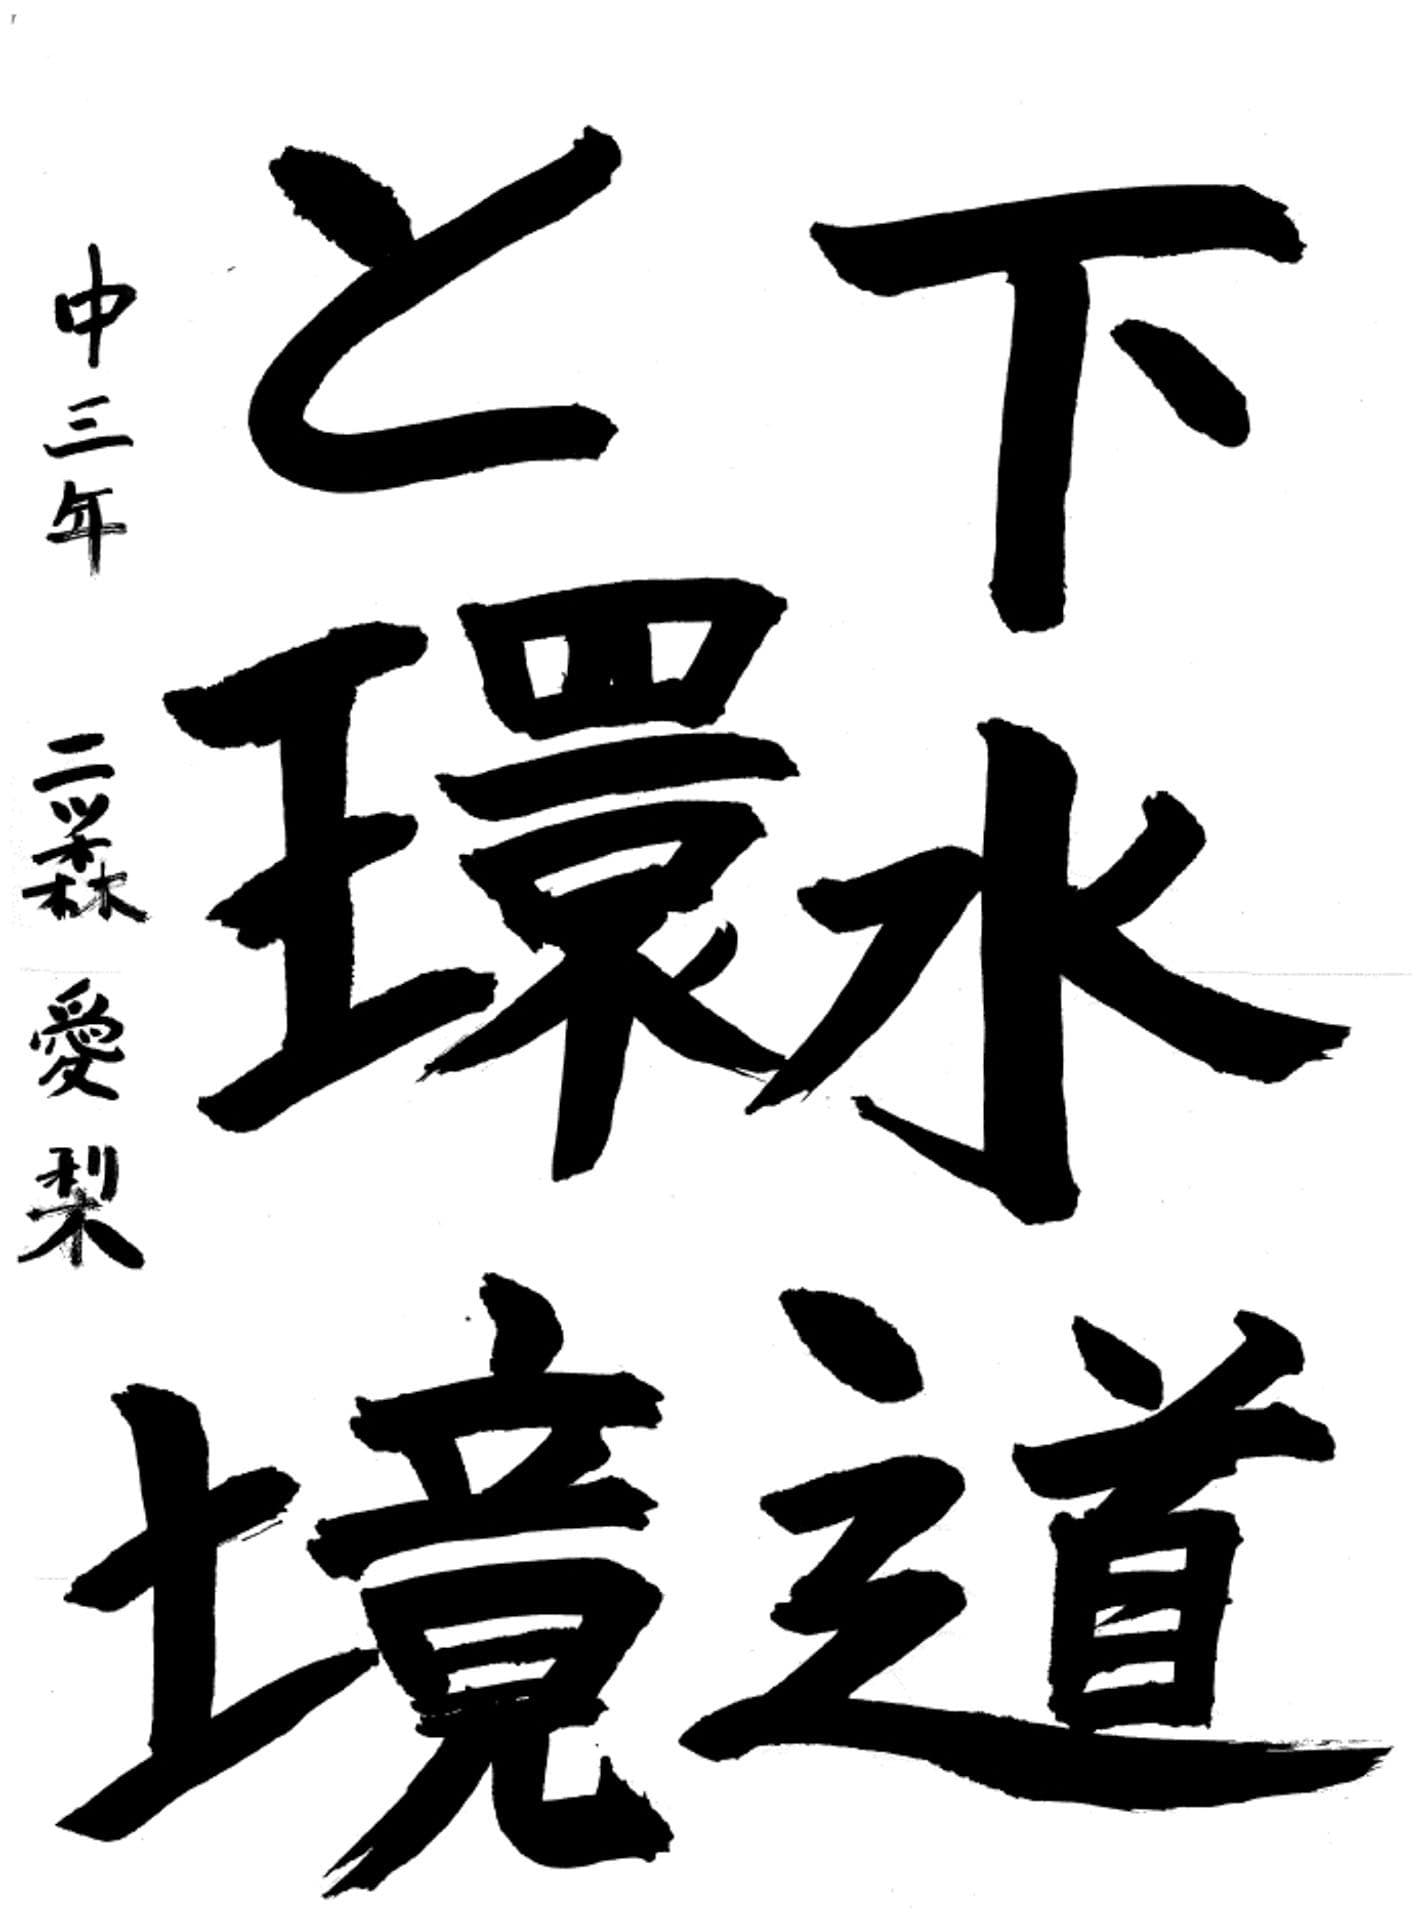 下水道
と環境
中三年 二ツ森 愛梨